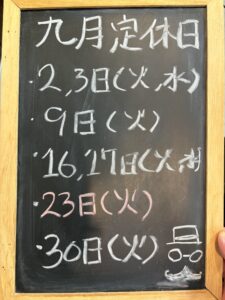 九月定休日
・2,3日(火,水)
・9日(火)
・16,17日(火,水)
・23日(火)
・30日(火)